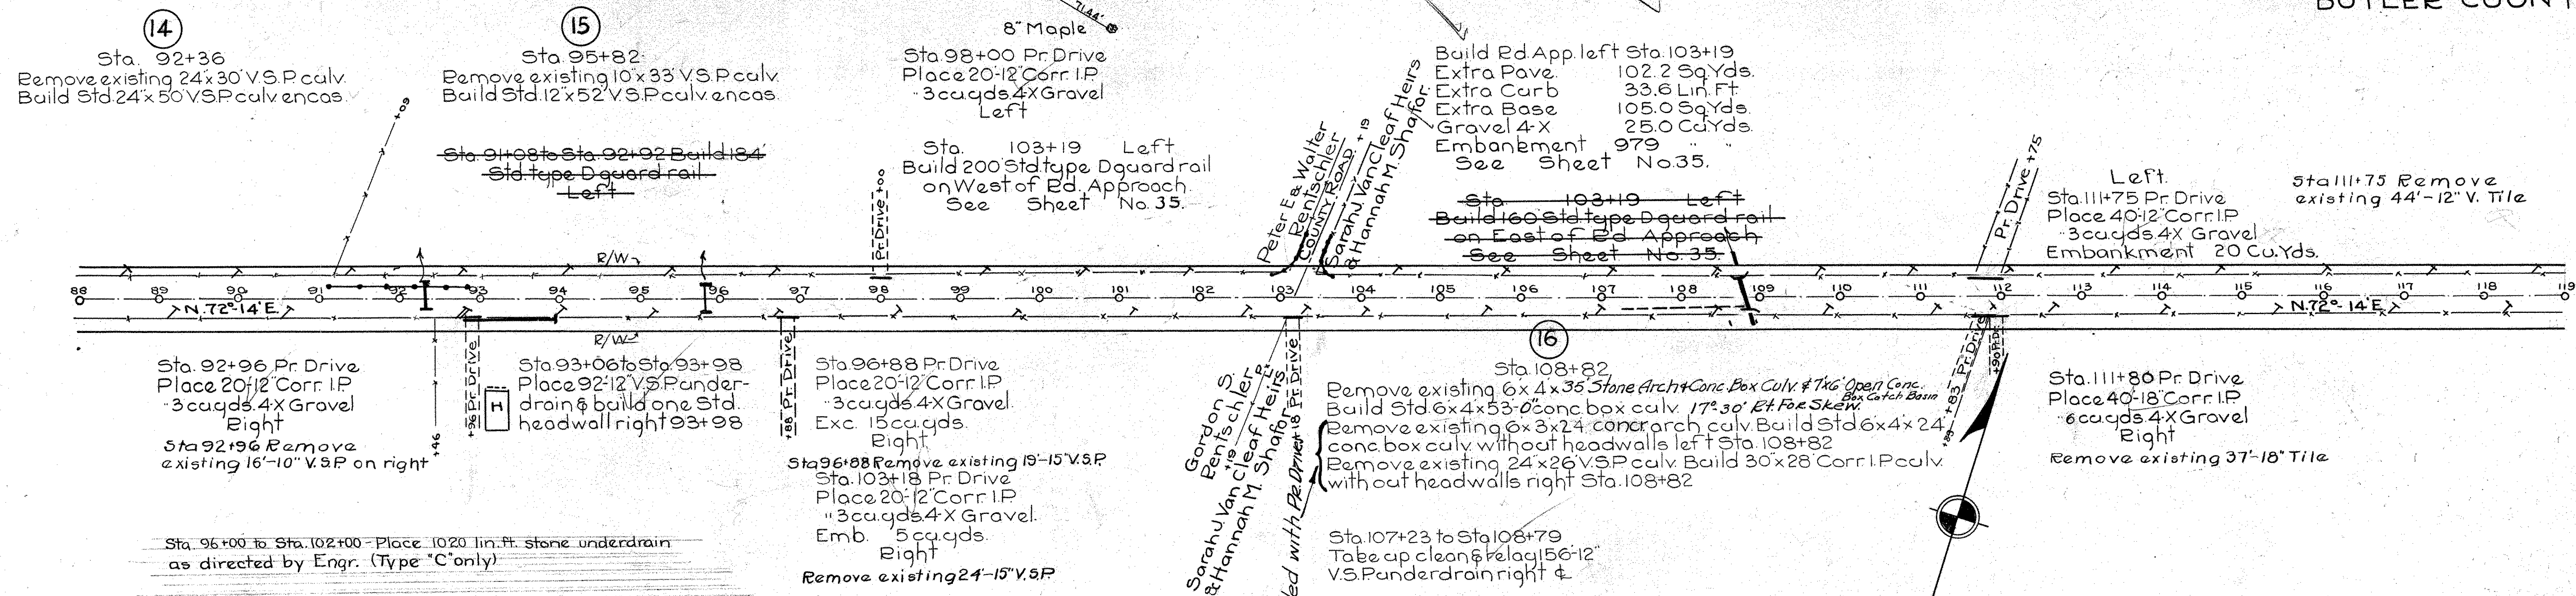 BUTLER COUNT
14
Sta. 92+36
Remove existing 24"x30' V.S.P. culv.
Build Std. 24"x50' V.S.P. culv. encas.
+09
15
Sta. 95+82
Remove existing 10"x33' V.S.P. culv.
Build Std. 12"x52' V.S.P. culv. encas.
Sta. 91+08 to Sta. 92+92 Build 184'
Std. type D guard rail
Left
71.44'
8" Maple
Sta. 98+00 Pr. Drive
Place 20'-12" Corr. I.P.
" 3 cu. yds. 4-X Gravel
Left
Sta. 103+19 Left
Build 200' Std. type D guard rail
on West of Rd. Approach.
See Sheet No. 35.
Pr. Drive +00
Peter E. & Walter
Rentschler
COUNTY ROAD +19
Sarah J. Van Cleaf Heirs
& Hannah M. Shafor
Build Rd. App. left Sta. 103+19
Extra Pave. 102.2 Sq. Yds.
Extra Curb 33.6 Lin. Ft.
Extra Base 105.0 Sq. Yds.
Gravel 4-X 25.0 Cu. Yds.
Embankment 979 " "
See Sheet No. 35.
Sta. 103+19 Left
Build 160' Std. type D guard rail
on East of Rd. Approach
See Sheet No. 35.
Pr. Drive +75
Left.
Sta. 111+75 Pr. Drive
Place 40'-12" Corr. I.P.
" 3 cu. yds. 4-X Gravel
Embankment 20 Cu. Yds.
Sta 111+75 Remove
existing 44'-12" V. Tile
R/W
88 89 90 91 92 93 94 95 96 97 98 99 100 101 102 103 104 105 106 107 108 109 110 111 112 113 114 115 116 117 118 119
N. 72°-14' E.
N. 72°-14' E.
R/W
Sta. 92+96 Pr. Drive
Place 20'-12" Corr. I.P.
" 3 cu. yds. 4-X Gravel
Right
Sta 92+96 Remove
existing 16'-10" V.S.P. on right
+46
+96 Pr. Drive
H
Sta. 93+06 to Sta. 93+98
Place 92'-12" V.S.P. under-
drain & build one Std.
headwall right 93+98
+88 Pr. Drive
Sta. 96+88 Pr. Drive
Place 20'-12" Corr. I.P.
" 3 cu. yds. 4-X Gravel.
Exc. 15 cu. yds.
Right
Sta 96+88 Remove existing 19'-15" V.S.P.
Sta. 103+18 Pr. Drive
Place 20'-12" Corr. I.P.
" 3 cu. yds. 4-X Gravel.
Emb. 5 cu. yds.
Right
Remove existing 24'-15" V.S.P.
Sta. 96+00 to Sta. 102+00 - Place 1020 lin. ft. stone underdrain
as directed by Engr. (Type "C" only)
Gordon S.
Rentschler
+19 P.
Sarah J. Van Cleaf Heirs
& Hannah M. Shafor
+18 Pr. Drive
ed with Pr. Drive
16
Sta. 108+82
Remove existing 6'x4'x35' Stone Arch & Conc. Box Culv. & 7'x6' Open Conc.
Box Catch Basin
Build Std. 6'x4'x53'-0" conc. box culv. 17°-30' Rt. For. Skew.
Remove existing 6'x3'x24' concr. arch culv. Build Std. 6'x4'x24'
conc. box culv. without headwalls left Sta. 108+82
Remove existing 24"x26' V.S.P. culv. Build 30"x28' Corr. I.P. culv.
without headwalls right Sta. 108+82
Sta. 107+23 to Sta 108+79
Take up clean & relay 156'-12"
V.S.P. underdrain right ℄
+83 Pr. Drive
+90 Pr. Dr.
Sta. 111+80 Pr. Drive
Place 40'-18" Corr. I.P.
" 6 cu. yds. 4-X Gravel
Right
Remove existing 37'-18" Tile